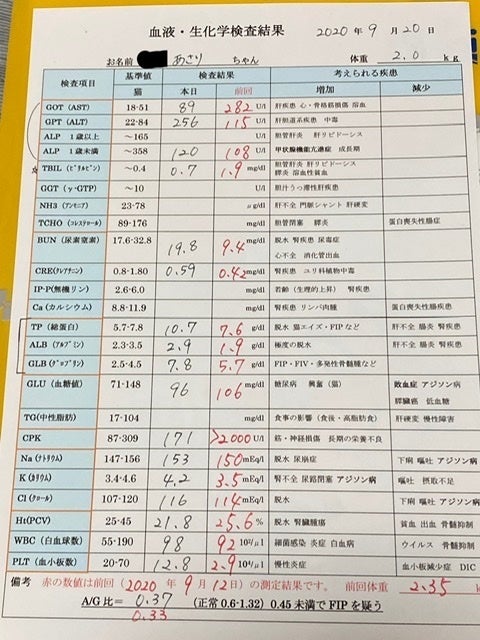 血液・生化学検査結果 2020年 9月20日
お名前 あさり ちゃん 体重 2.0 kg
検査項目 基準値 検査結果 考えられる疾患
猫 本日 前回 増加 減少
GOT (AST) 18-51 89 282 U/l 肝疾患 心・骨格筋損傷 溶血
GPT (ALT) 22-84 256 115 U/l 肝胆道系疾患 中毒
ALP 1歳以上 ~165 U/l 胆管肝炎 肝リピドーシス
ALP 1歳未満 ~358 120 108 U/l 甲状腺機能亢進症 成長期
TBIL (ビリルビン) ~0.4 0.7 1.9 mg/dl 胆管肝炎 肝リピドーシス
膵炎 溶血性貧血
GGT (γ-GTP) ~10 U/l 胆汁うっ滞性肝疾患
NH3 (アンモニア) 23-78 μg/dl 肝不全 門脈シャント 肝硬変
TCHO (コレステロール) 89-176 mg/dl 胆管閉塞 膵炎 蛋白喪失性腸症
BUN (尿素窒素) 17.6-32.8 19.8 9.4 mg/dl 脱水 腎疾患 尿毒症
心不全 消化管出血
CRE(クレアチニン) 0.8-1.80 0.59 0.42 mg/dl 腎疾患 ユリ科植物中毒
IP-P(無機リン) 2.6-6.0 mg/dl 若齢(生理的上昇) 腎疾患
Ca (カルシウム) 8.8-11.9 mg/dl 腎疾患 リンパ肉腫 蛋白喪失性腸疾患
TP (総蛋白) 5.7-7.8 10.7 7.6 g/dl 脱水 猫エイズ・FIPなど 肝不全 腸炎 腎疾患
ALB (アルブミン) 2.3-3.5 2.9 1.9 g/dl 極度の脱水 肝不全 腸炎 腎疾患
GLB (グロブリン) 2.5-4.5 7.8 5.7 g/dl FIP・FIV・多発性骨髄腫など
GLU (血糖値) 71-148 96 106 mg/dl 糖尿病 興奮(猫) 敗血症 アジソン病
膵臓癌 低血糖
TG(中性脂肪) 17-104 mg/dl 食事の影響(食後・高脂肪食) 肝硬変 慢性障害
CPK 87-309 171 >2000 U/l 筋・神経損傷 長期の栄養不良
Na (ナトリウム) 147-156 153 150 mEq/l 脱水 尿崩症 下痢 嘔吐 アジソン病
K (カリウム) 3.4-4.6 4.2 3.5 mEq/l 腎不全 尿路閉塞 アジソン病 嘔吐 摂取不足
Cl (クロール) 107-120 116 114 mEq/l 脱水 下痢 嘔吐 アジソン病
Ht(PCV) 25-45 21.8 25.6 % 脱水 腎臓腫瘍 貧血 出血 骨髄抑制
WBC (白血球数) 55-190 98 92 10²/μl 細菌感染 炎症 白血病 ウイルス 骨髄抑制
PLT (血小板数) 20-70 12.8 2.9 10⁴/μl 慢性炎症 血小板減少症 DIC
備考 赤の数値は前回(2020年 9月12日)の測定結果です。 前回体重 2.35 kg
A/G 比= 0.37 (正常 0.6-1.32) 0.45 未満で FIP を疑う
0.33